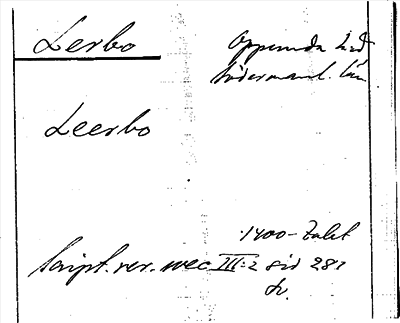 Lerbo
Oppunda hd
Södermanl. län
Leerbo
1400-talet
Script. rer. svec III:2 sid 281